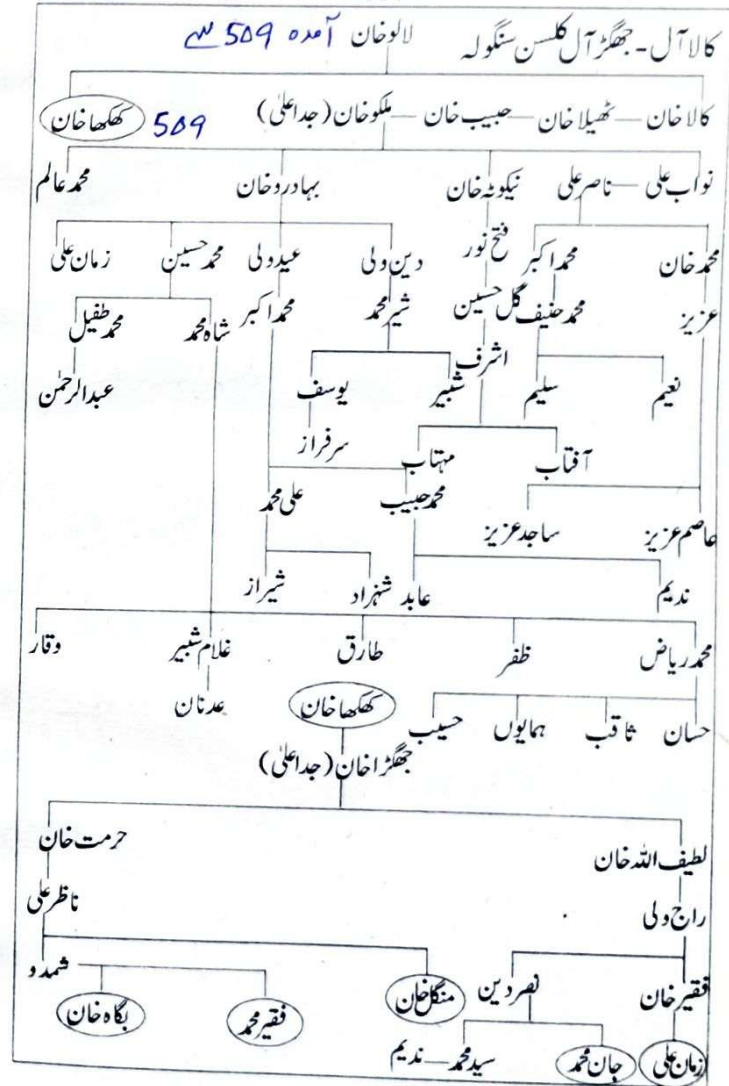 کالا آل - جھگڑ آل کلسن سنگولہ لالو خان آمدہ 509 سے
کالا خان — ٹھیلا خان — حبیب خان — ملکو خان (جد اعلیٰ) 509 کھکھا خان
نواب علی — ناصر علی نیکو ٹہ خان بہادرو خان محمد عالم
محمد خان محمد اکبر فتح نور دین ولی عید ولی محمد حسین زمان علی
عزیز محمد حنیف گل حسین شیر محمد محمد اکبر شاہ محمد محمد طفیل
نعیم سلیم اشرف شبیر یوسف عبدالرحمٰن
آفتاب مہتاب سرفراز
عاصم عزیز ساجد عزیز محمد حبیب علی محمد
ندیم عابد شہزاد شیراز
محمد ریاض ظفر طارق غلام شبیر وقار
حسان ثاقب ہمایوں حسیب کھکھا خان عدنان
جھگڑا خان (جد اعلیٰ)
لطیف اللہ خان حرمت خان
راج ولی ناظر علی
فقیر خان نصر دین منگل خان شمدو
زمان علی جان محمد سید محمد — ندیم فقیر محمد بگاہ خان